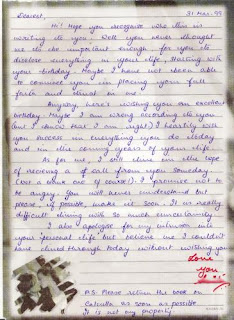 Dearest,
31 Mar. 99
Hi! Hope you recognise who this is
writing to you. Well you never thought
me to be important enough for you to
disclose everything in your life, starting with
your birthday. Maybe I have not been able
to convince you in placing your full
faith and trust in me.
Anyway, here's wishing you an excellent
birthday. Maybe I am wrong according to you
(but I think that I am right) I heartily wish
you success in everything you do today
and in the coming years of your life.
As for me, I still shine in the hope
of receiving a call from you someday
(but a blank one of course) I promise not to
be angry. You will never understand but
please if possible, make it soon. It is really
difficult shining with so much uncertainty.
I also apologise for my intrusion into
your personal life but believe me I couldn't
have lived through today without wishing you.
Love
you
P.S. Please return the book on
Calcutta as soon as possible.
It is not my property.